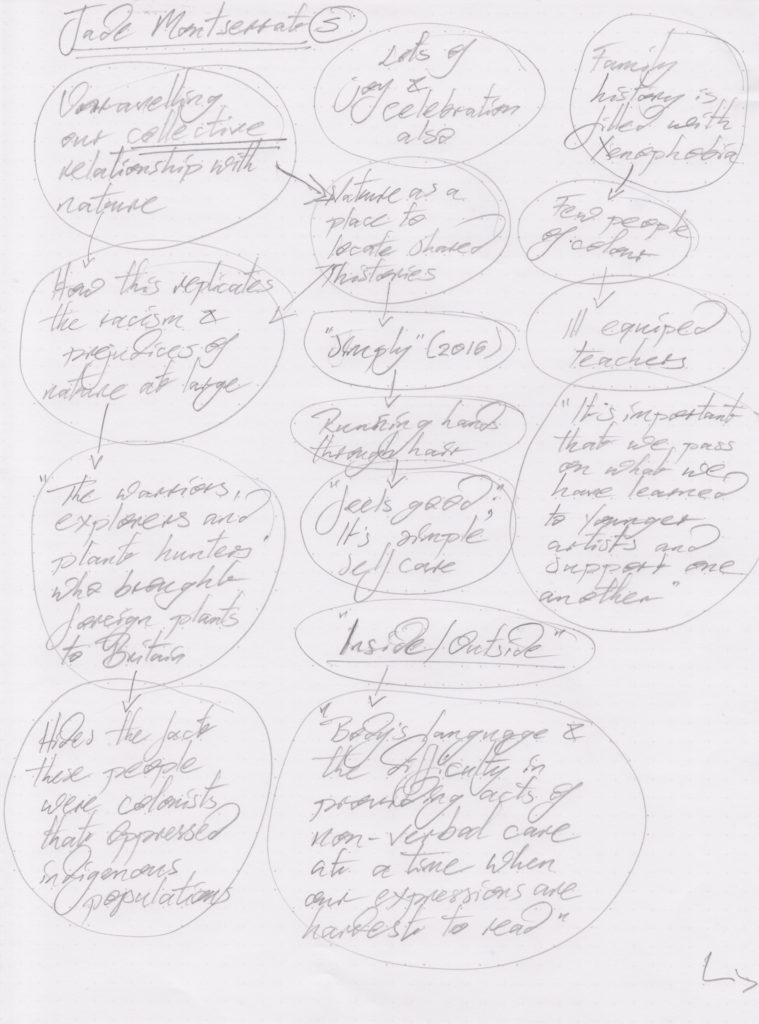 Jade Montserrat (5)
Unravelling
our collective
relationship with
nature
How this replicates
the racism &
prejudices of
nature at large
"The warriors,
explorers and
plant hunters"
who brought
foreign plants
to Britain
Hides the fact
these people
were colonists
that oppressed
indigenous
populations
Lots of
joy &
celebration
also
Nature as a
place to
locate shared
histories
(2016)
Running hand
through hair
"feels good;
It's simple
self care
"Inside/Outside"
"Body's language &
the difficulty in
providing acts of
non-verbal care
at a time when
our expressions are
hardest to read"
Family
history is
filled with
Xenophobia
Few people
of colour
Ill equiped
teachers
"It's important
that we pass
on what we
have learned
to younger
artists and
support one
another"